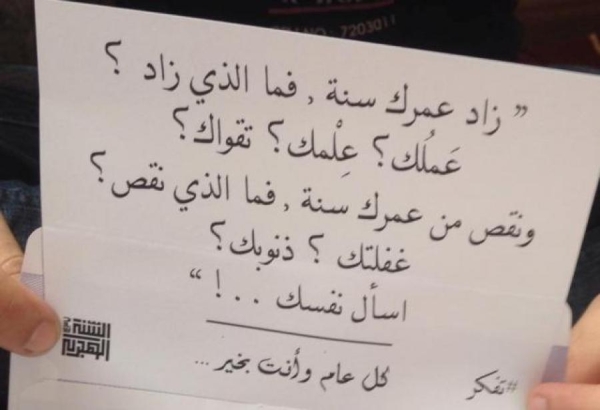 NO : 7203011
” زاد عمرك سنة , فما الذي زاد ؟
عَملُك؟ عِلْمك؟ تقواك؟
ونقص من عمرك سنة , فما الذي نقص؟
غفلتك ؟ ذنوبك؟
اسأل نفسك . . . ! “
كل عام وأنت بخير ...
#تفكر